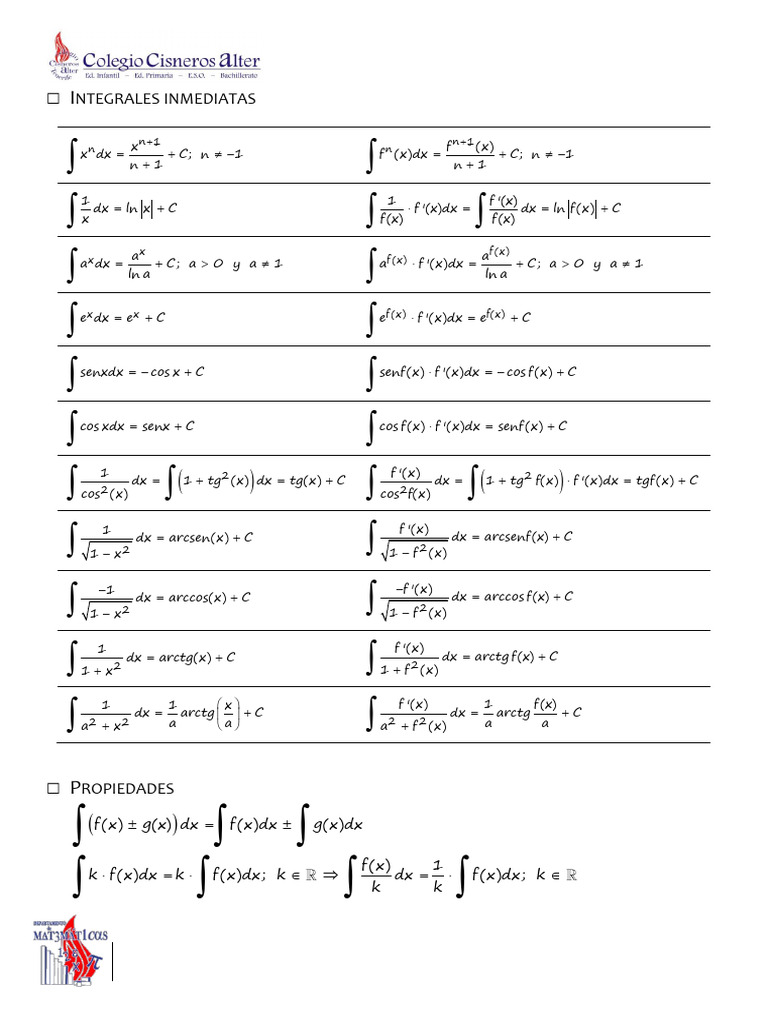 Colegio Cisneros alter
Ed. Infantil – Ed. Primaria – E.S.O. – Bachillerato
☐ INTEGRALES INMEDIATAS
∫ xⁿdx = xⁿ⁺¹/(n + 1) + C; n ≠ −1    ∫ fⁿ(x)dx = fⁿ⁺¹(x)/(n + 1) + C; n ≠ −1
∫ 1/x dx = ln|x| + C    ∫ 1/f(x) · f'(x)dx = ∫ f'(x)/f(x) dx = ln|f(x)| + C
∫ aˣdx = aˣ/ln a + C; a > 0 y a ≠ 1    ∫ a^f(x) · f'(x)dx = a^f(x)/ln a + C; a > 0 y a ≠ 1
∫ eˣdx = eˣ + C    ∫ e^f(x) · f'(x)dx = e^f(x) + C
∫ senxdx = −cos x + C    ∫ senf(x) · f'(x)dx = −cos f(x) + C
∫ cos xdx = senx + C    ∫ cos f(x) · f'(x)dx = senf(x) + C
∫ 1/cos²(x) dx = ∫ (1 + tg²(x))dx = tg(x) + C    ∫ f'(x)/cos²f(x) dx = ∫ (1 + tg² f(x)) · f'(x)dx = tgf(x) + C
∫ 1/√(1 − x²) dx = arcsen(x) + C    ∫ f'(x)/√(1 − f²(x)) dx = arcsenf(x) + C
∫ −1/√(1 − x²) dx = arccos(x) + C    ∫ −f'(x)/√(1 − f²(x)) dx = arccos f(x) + C
∫ 1/(1 + x²) dx = arctg(x) + C    ∫ f'(x)/(1 + f²(x)) dx = arctg f(x) + C
∫ 1/(a² + x²) dx = 1/a arctg(x/a) + C    ∫ f'(x)/(a² + f²(x)) dx = 1/a arctg f(x)/a + C
☐ PROPIEDADES
∫ (f(x) ± g(x))dx = ∫ f(x)dx ± ∫ g(x)dx
∫ k · f(x)dx = k · ∫ f(x)dx; k ∈ ℝ ⇒ ∫ f(x)/k dx = 1/k · ∫ f(x)dx; k ∈ ℝ
MAT3MÁT1CαS